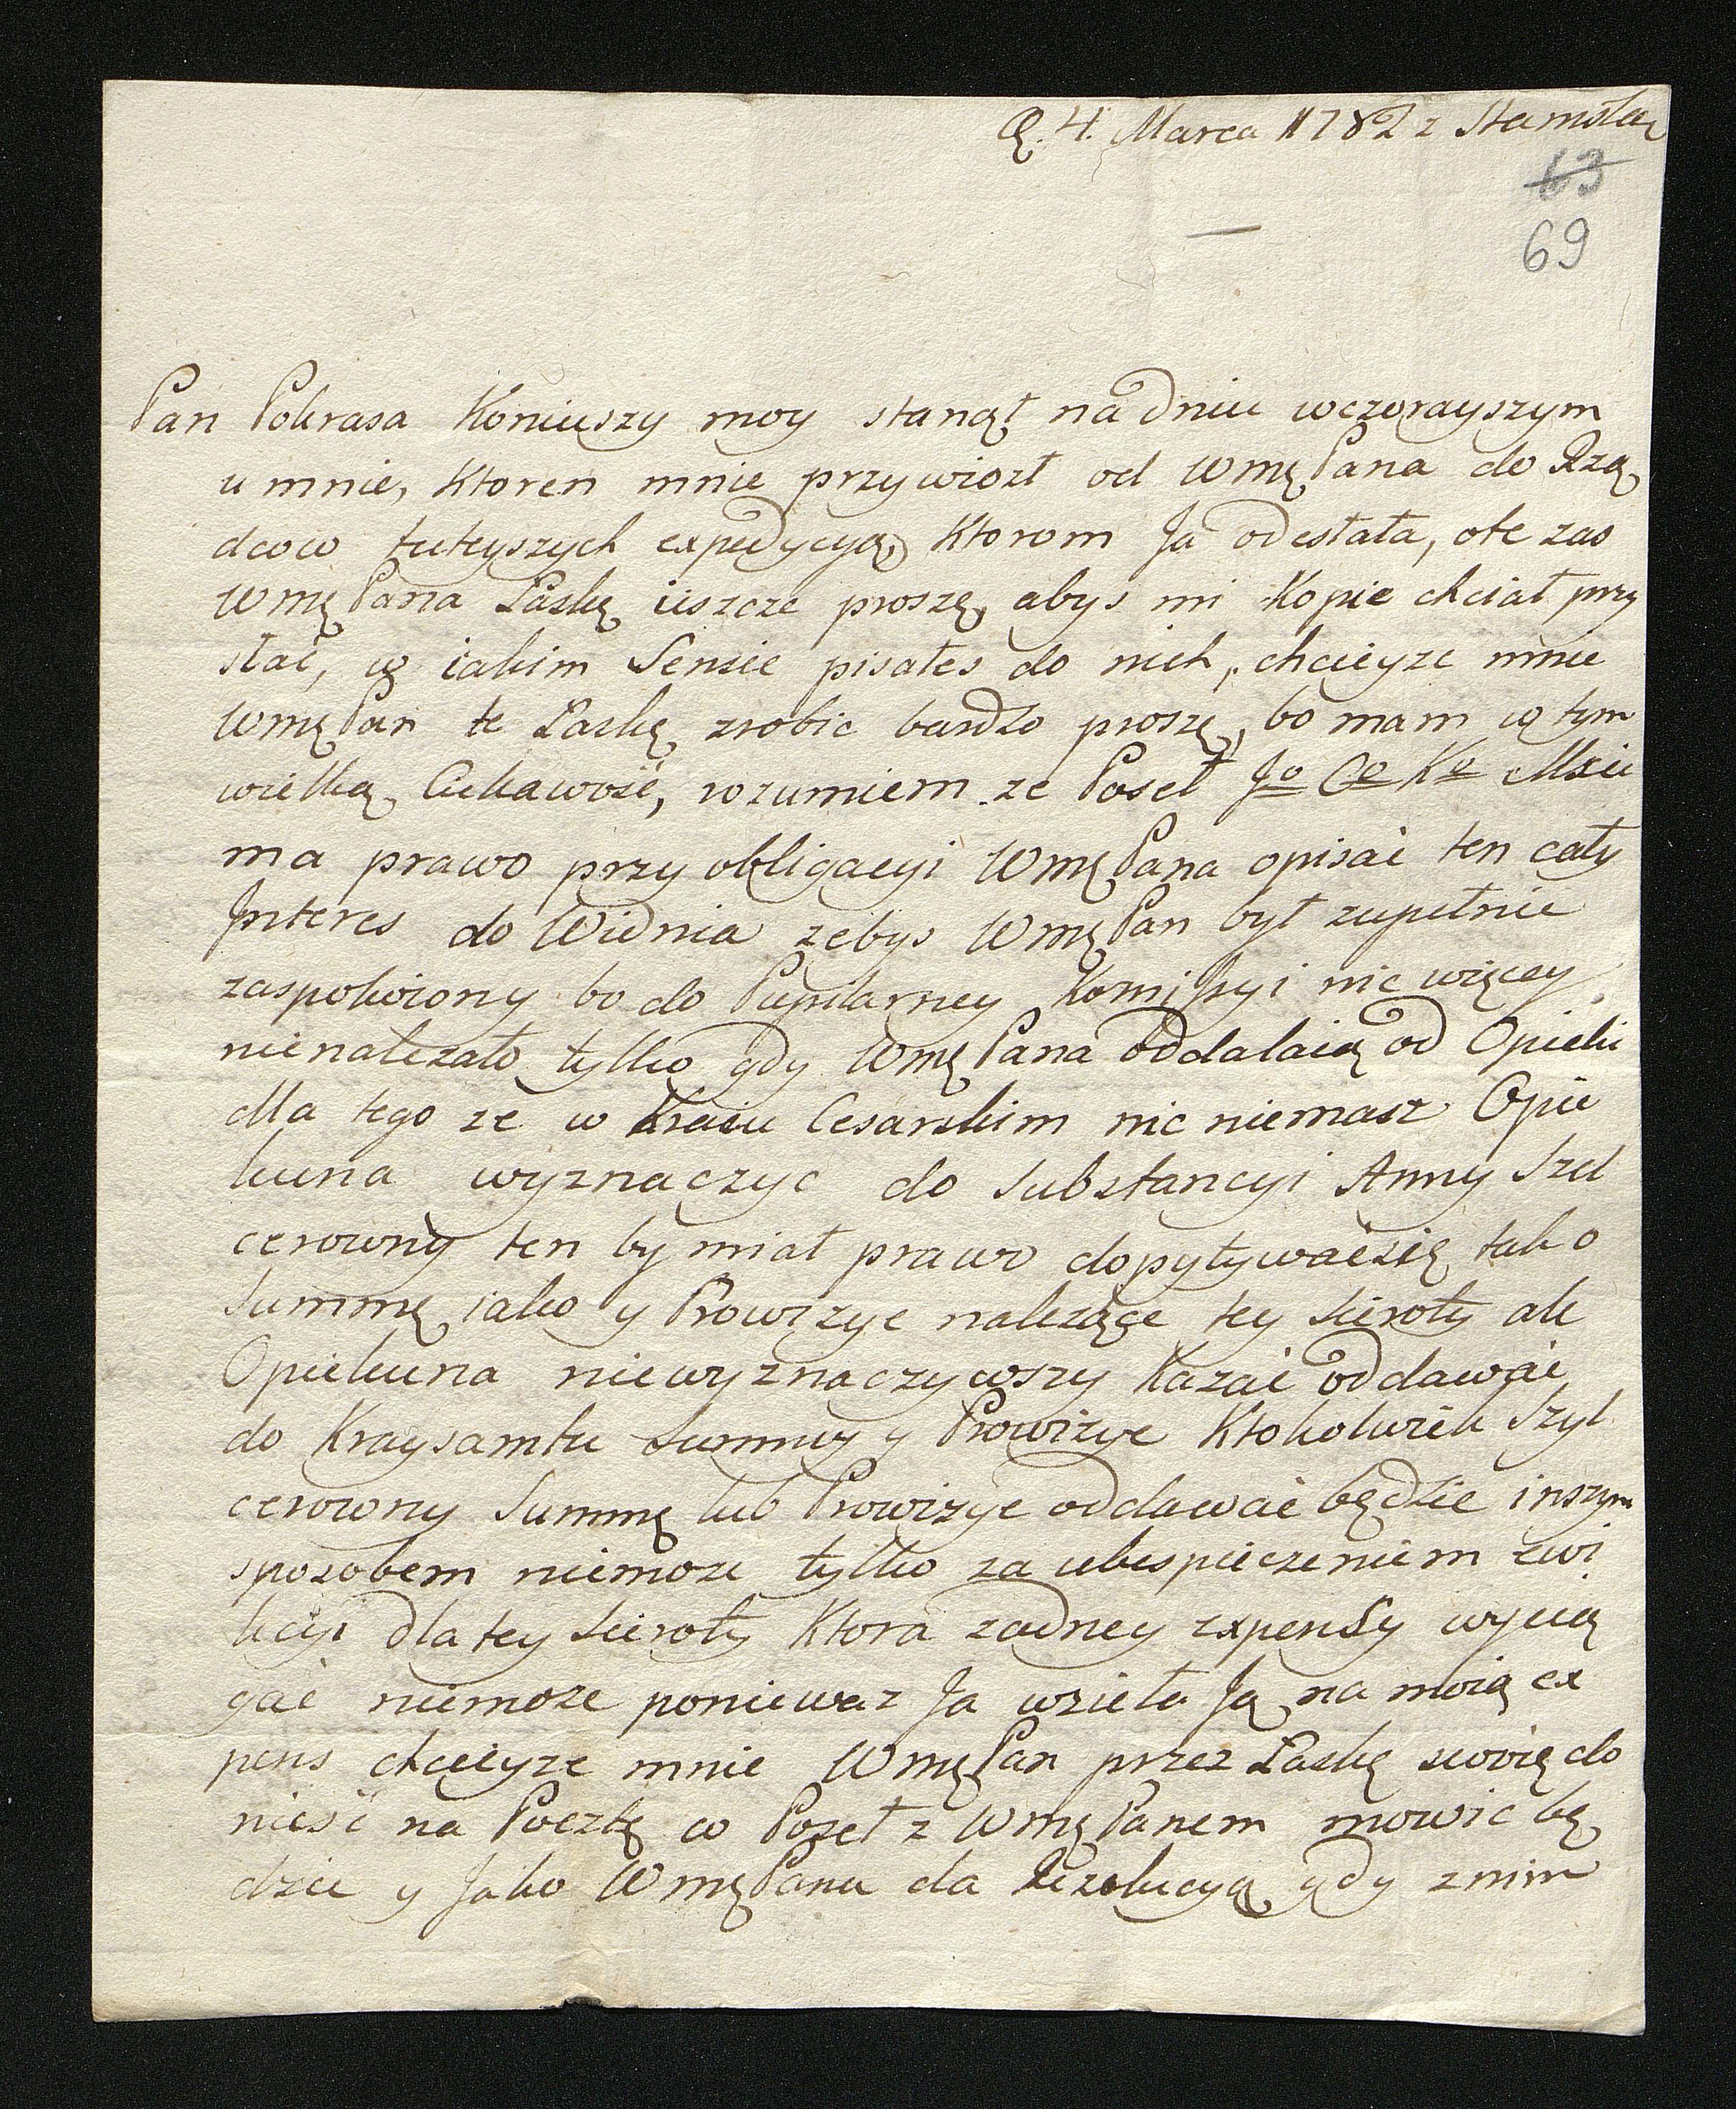 D. 4. Marca 1782 z Stanisła
63
69
Pan Pokrasa Koniuszy moy stanął na dniu wczorayszym
u mnie, ktoren mnie przywiozł od WmęPana do Rzą
dcow tuteyszych expedycyą, ktorom Ja odesłała, ote zas
WmęPana Łaskę ieszcze proszę, abys mi Kopie chciał przy
słać, w iakim Sensie pisałes do nich, chcieyze mnie
WmęPan te Łaskę zrobic bardzo proszę, bo mam w tym
wielką Ciekawość, rozumiem ze Poseł Jo Co Ko Mści
ma prawo przy obligacyi WmęPana opisać ten cały
Jnteres do Widnia zebys WmęPan był zupełnie
zaspokoiony bo do Pupilarney Komissyi nic więcey
nienalezało tylko gdy WmęPana oddalaią od Opieki
dla tego ze w Kraiu Cesarskim nic niemasz Opie
kuna wyznaczyc do Substancyi Anny Szel
cerowny ten by miał prawo dopytywać się tako
Summę iako y Prowizye nalezące tey sieroty ale
Opiekuna niewyznaczywszy Kazać oddawać
do Kraysamtu summy y Prowizye Ktokolwiek Szyl
cerowny Summę lub Prowizye oddawać będzie inszym
sposobem niemoze tylko za ubespieczeniem ewi
kcyi dla tey sieroty Ktora zadney expensy wycią
gać niemoze poniewaz Ja wzieła Ją na moią ex
pens chcieyze mnie WmęPan przez Łaskę swoię do
nieść na Pocztę co Poseł z WmęPanem mowic bę
dzie y Jako WmęPanu da Rezolucyą gdy znim